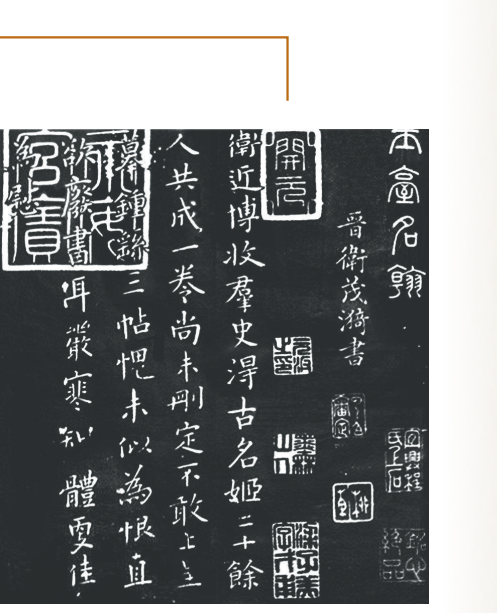 玉臺名翰
晉衛茂漪書
開元
衛近博收羣史淂古名姬二十餘
人共成一卷尚未刪定不敢上呈
摹鍾繇三帖愧未似為恨直
欲廢書耳嚴寒知體更佳
慰